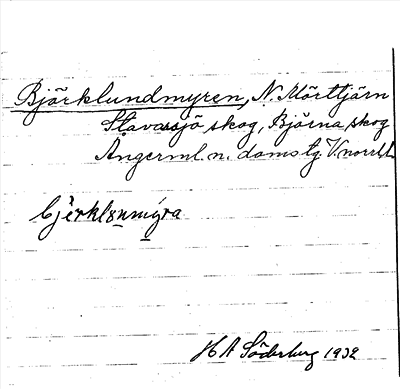 Björklundmyren, N. Mörttjärn
Stavassjö skog, Björna skog
Ångerml. n. doms tg. V.norrl.l.
bjèrklənmýra
H A Söderberg 1932